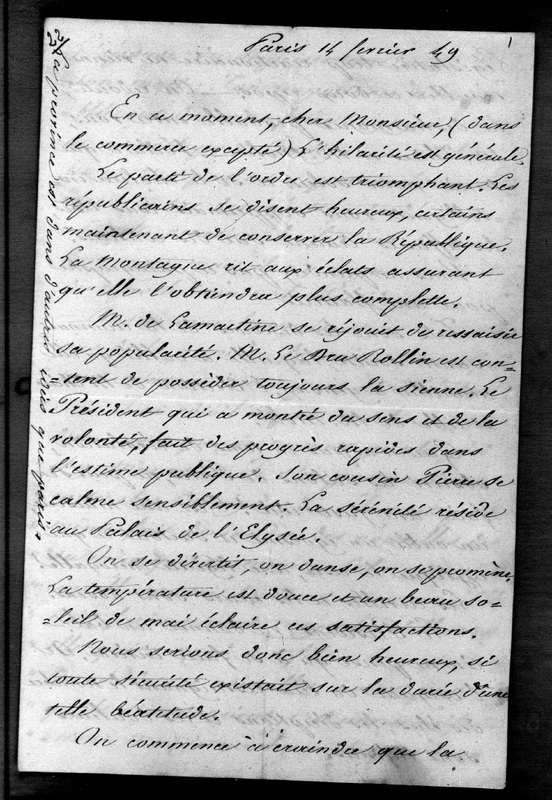 Paris 14 fevrier 49
1
En ce moment, cher Monsieur, (dans
le commerce excepté) L'hilarité est générale.
Le parti de l'ordre est triomphant. Les
républicains se disent heureux, certains
maintenant de conserver la République.
La Montagne rit aux éclats assurant
qu'elle l'obtiendra plus complette.
M. de Lamartine se réjouit de ressaisir
sa popularité. M. Le Dru Rollin est con=
=tent de posséder toujours la sienne. Le
Président qui a montré du sens et de la
volonté, fait des progrès rapides dans
l'estime publique. Son cousin Pierre se
calme sensiblement. La sérénité réside
au Palais de l'Elysée.
On se divertit, on danse, on se promène.
La température est douce et un beau so=
=leil de mai éclaire ces satisfactions.
Nous serions donc bien heureux, si
toute sécurité existait sur la durée d'une
telle béatitude.
On commence à craindre que la
La province est dans d'autres idées que paris.